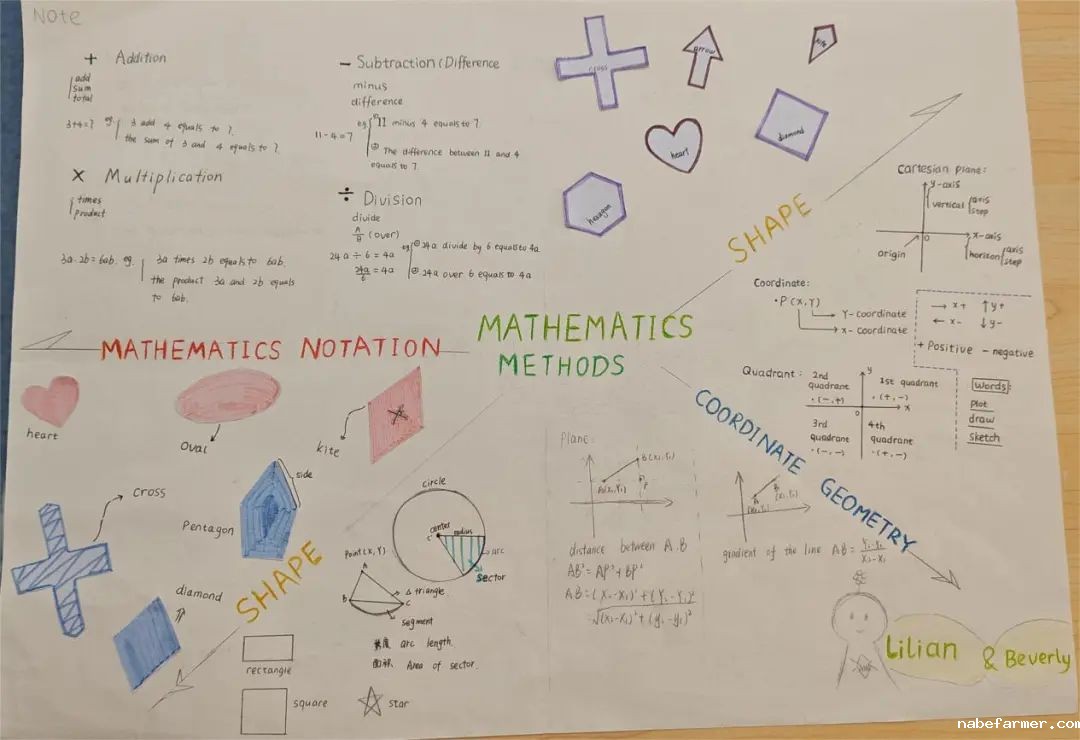 Note
+ Addition
add
sum
total
3+4=7 eg. 3 add 4 equals to 7.
the sum of 3 and 4 equals to 7.
× Multiplication
times
product
3a·2b=6ab. eg. 3a times 2b equals to 6ab.
the product 3a and 2b equals
to 6ab.
− Subtraction(Difference
minus
difference
11-4=7 eg ① 11 minus 4 equals to 7
② The difference between 11 and 4
equals to 7
÷ Division
divide
(over)
24a ÷ 6 = 4a eg ① 24a divide by 6 equal to 4a
24a/6 = 4a ② 24a over 6 equals to 4a
cross
arrow
kite
heart
diamond
hexagon
SHAPE
Cartesian plane:
y-axis
vertical axis
step
0
x-axis
origin
horizon axis
step
Coordinate:
·P(X,Y)
Y-coordinate
x-coordinate
→ x+ ↑y+
← x- ↓y-
+ Positive - negative
Quadrant:
2nd
quadrant
·(-,+)
y
1st quadrant
·(+,-)
0
x
3rd
quadrant
·(-,-)
4th
quadrant
·(+,-)
words:
plot
draw
sketch
MATHEMATICS NOTATION
MATHEMATICS
METHODS
COORDINATE GEOMETRY
heart
Oval
kite
cross
side
Pentagon
diamond
SHAPE
circle
center
radius
arc
sector
Point(X,Y)
A
B
C
triangle
segment
arc length.
面积 Area of sector.
rectangle
square
star
Plane:
B(x₂,Y₂)
A(x₁,Y₁)
P
distance between A.B
AB²=AP²+BP²
gradient of the line AB =
Lilian & Beverly
nabefarmer.com